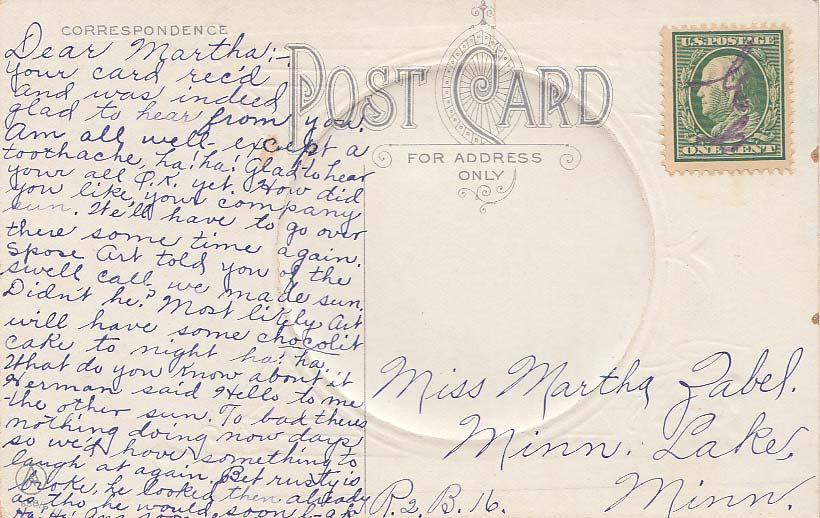 CORRESPONDENCE
Dear Martha:-
Your card rec'd
and was indeed
glad to hear from you.
Am all well except a
toothache, ha! ha! Glad to hear
your all O.K. yet. How did
you like your company
sun. We'll have to go over
there some time again.
Spose Art told you of the
swell call we made sun.
Didn't he? Most likely Art
will have some chocolit
cake to night ha! ha!
What do you know about it
Herman said Hello to me
the other sun. To bad theres
nothing doing now days
so we'd have something to
laugh at again. Bet rusty is
broke, he looked then already
as tho he would soon
Ha! Ha!
POST CARD
FOR ADDRESS
ONLY
U.S. POSTAGE
ONE CENT
Miss Martha Zabel.
Minn. Lake,
R.2, B.16. Minn.
A